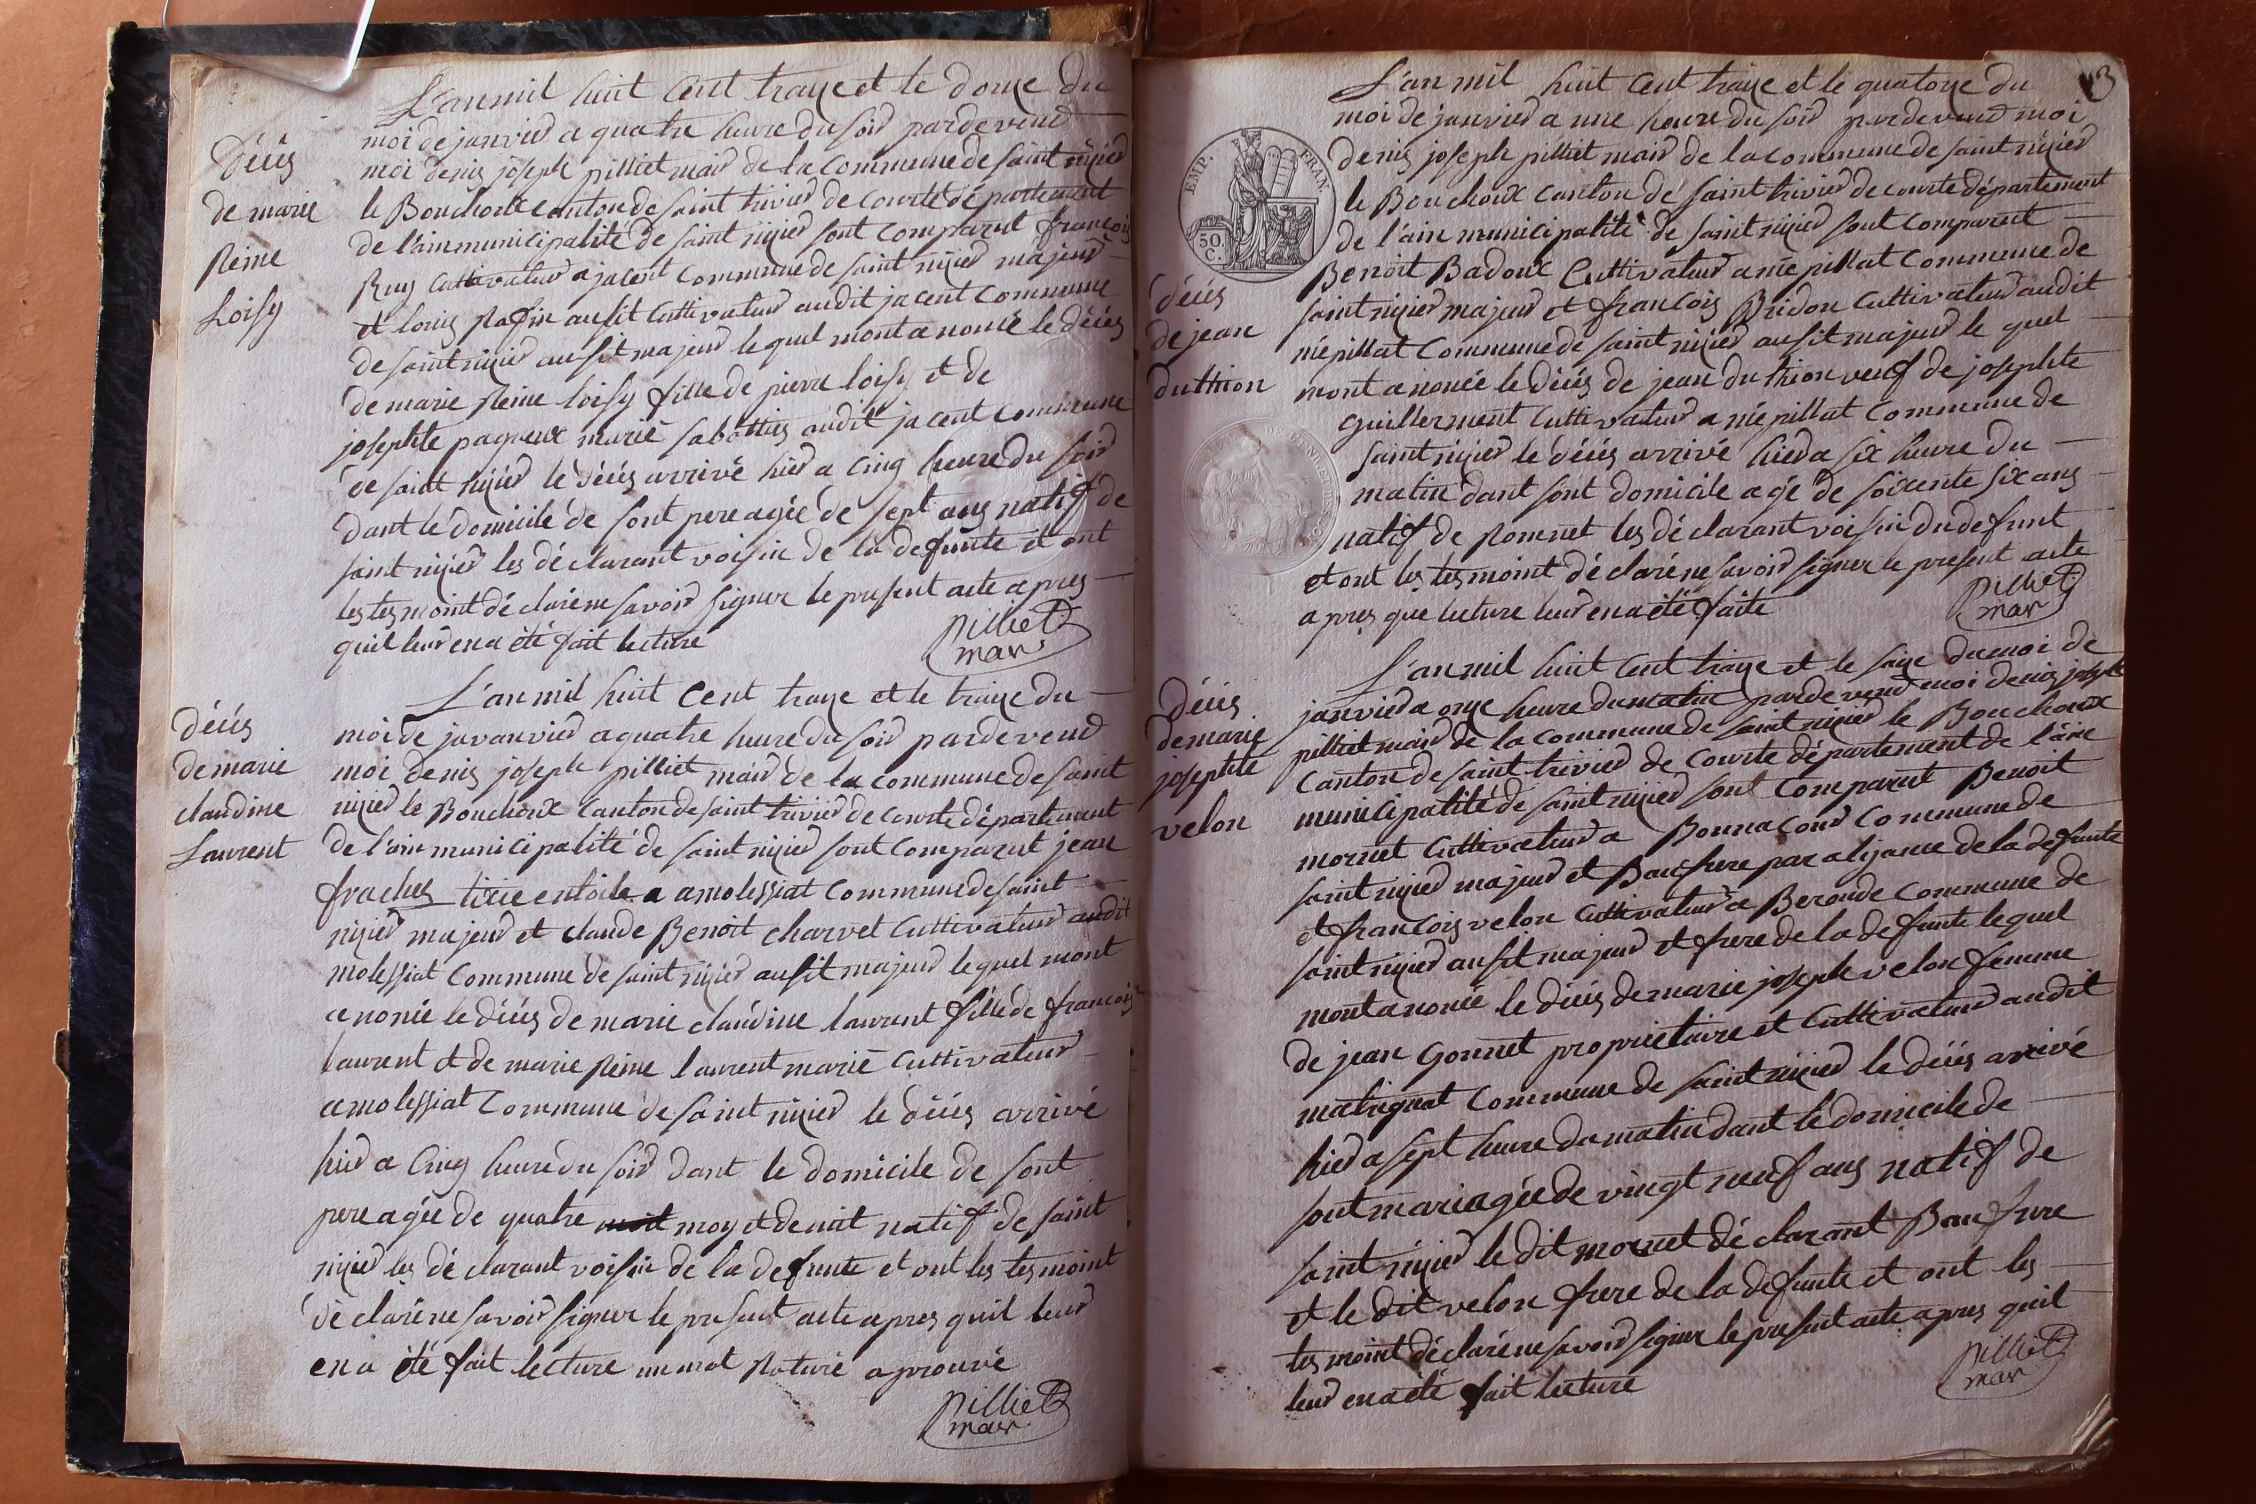 L'an mil huit cent traize et le douze du
moi de janvier a quatre heure du soir pardevend
moi denis joseph pilliet mair de la commune de saint nizier
le Bouchoux canton de saint trivier de courte département
de l'ain municipalité de saint nizier sont comparut françois
Ruy cultivateur a jacent commune de saint nizier majeur
et louis Rafin ausit cultivateur audit jacent commune
de saint nizier ausit majeur lequel mont anoncé le décés
de marie Reine loisy fille de pierre loisy et de
josephte pagneux marié sabottier audit jacent commune
de saint nizier le décés arrivé hier a cinq heure du soir
dant le domicile de sont pere agée de sept ans natif de
saint nizier les déclarant voisin de la defunte et ont
les tesmoint déclaré ne savoir signer le present acte apres
quil leur en a été fait lecture
pilliet
mair
Décés
de marie
Reine
Loisy
L'an mil huit cent traize et le traize du
moi de javanvier a quatre heure du soir pardevend
moi denis joseph pilliet mair de la commune de saint
nizier le Bouchoux canton de saint trivier de courte département
de l'ain municipalité de saint nizier sont comparut jean
frachet tixie entoile a amolessiat commune de saint
nizier majeur et claude Benoit charvet cultivateur audit
molessiat commune de saint nizier ausit majeur lequel mont
anoncé le décés de marie claudine laurent fille de françois
laurent et de marie Reine laurent marié cultivateur
amolessiat commune de saint nizier le décés arrivé
hier a cinq heure du soir dant le domicile de sont
pere agée de quatre moy et demit natif de saint
nizier les déclarant voisin de la defunte et ont les tesmoint
déclaré ne savoir signer le present acte apres quil leur
en a été fait lecture un mot Raturé aprouvé
pilliet
mair
décés
de marie
claudine
Laurent
3
L'an mil huit cent traize et le quatorze du
moi de janvier a une heure du soir pardevend moi
denis joseph pilliet mair de la commune de saint nizier
le Bouchoux canton de saint trivier de courte département
de l'ain municipalité de saint nizier sont comparut
Benoit Badoux cultivateur a mépillat commune de
saint nizier majeur et françois Bridon cultivateur audit
mépillat commune de saint nizier ausit majeur le quel
mont anoncé le décés de jean duthion veuf de josephte
guillerment cultivateur a mépillat commune de
saint nizier le décés arrivé hier a six heure du
matin dant sont domicile agé de soixente six ans
natif de Romnet les déclarant voisin du defunt
et ont les tesmoint déclaré ne savoir signer le present acte
apres que lecture leur en a été faite
pilliet
mair
EMP. FRAN
50.
C.
décés
de jean
duthion
L'an mil huit cent traize et le saize du moi de
janvier a onze heure du matin pardevend moi denis joseph
pilliet mair de la commune de saint nizier le Bouchoux
canton de saint trivier de courte département de l'ain
municipalité de saint nizier sont comparut Benoit
mornet cultivateur a Bonnacour commune de
saint nizier majeur et Baufrere par alijance de la defunte
et françois velon cultivateur a Beronde commune de
saint nizier ausit majeur et frere de la defunte lequel
mont anoncé le décés de marie joseph velon femme
de jean gonnet proprietaire et cultivateur audit
matrignat commune de saint nizier le décés arrivé
hier a sept heure du matin dant le domicile de
sont mari agée de vingt neuf ans natif de
saint nizier le dit mornet déclarant Baufrere
et le dit velon frere de la defunte et ont les
tesmoint déclaré ne savoir signer le present acte apres quil
leur en a été fait lecture
pilliet
mair
décés
de marie
josephte
velon